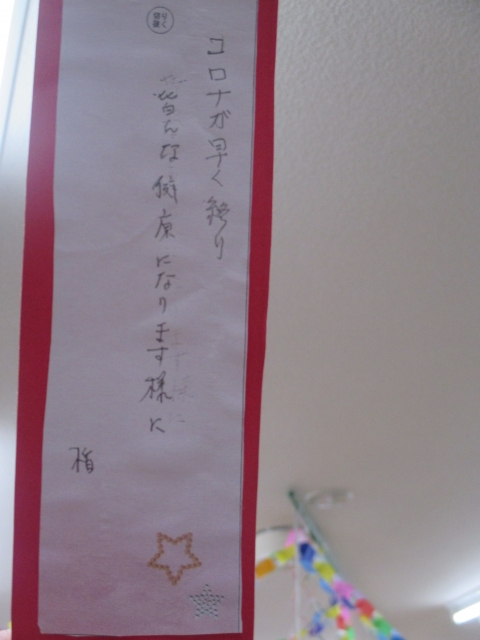 コロナが早く終り
皆んな健康になります様に